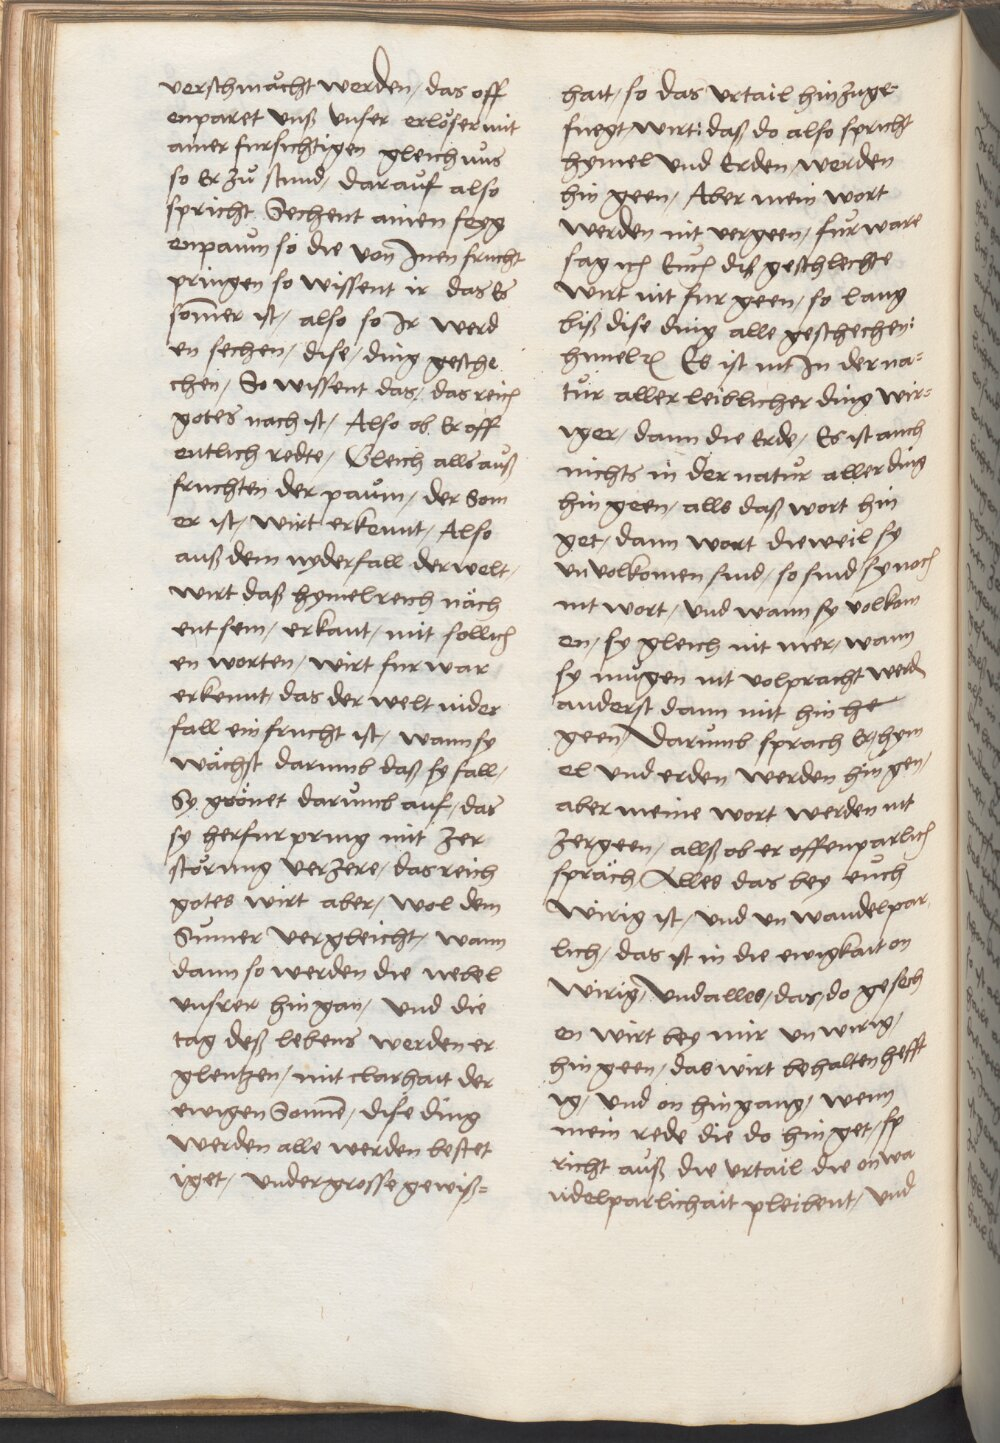 verschmächt werden / das off
enparet unß unser erlöser mit
ainer fursichtigen gleichnus
so Er zů stund / darauf also
spricht Sechent ainen feyg
enpaum so die von Inen frucht
pringen so wissent ir das Es
som̄er ist / also so Ir werd
en sechen / dise / ding gesche
chen / So wissent das / das reich
gotes nach ist / Also ob Er off
entlich redte / Gleich alls auß
fruchten der paum / der Som
er ist / wirt erkennt / Also
auß dem nyderfall der welt /
wirt daß hymelreich näch
ent sein / erkant / mit sollich
en worten / wirt furwar
erkennt / das der welt nider
fall ein frucht ist / wann sy
wächst darumb daß sy fall /
Sy grönet darumb auf / das
sy herfur pring mit zer
störung verzere / das reich
gotes wirt aber / wol dem
Sumer vergleicht / wann
dann so werden die nebel
unsrer hin gan / und die
tag deß lebens werden er
glentzen / mit clarhait der
ewigen Sonnē / dise ding
werden alle werden bestet
iget / under grosse gewiß=
hait / so das urtail hinzuge
fuegt wirt: daß do also spricht
hymel und Erden / werden
hin geen / Aber mein wort
werden nit vergeen / fur ware
sag ich Euch diß geschlechte
wirt nit fur geen / so lang
biß dise ding alle geschechen:
himel Es ist nit In der na=
tur aller leiblicher ding wir=
iger / dann die Erde / Es ist auch
nichts in der natur aller ding
hin geen / alls daß wort hin
get / dann wort dieweil sy
unvolkomen sind / so sind sy noch
nit wort / und wann sy volkom
en / sy gleich nit mer / wann
sy mugen nit volpracht werdē
anderst dann mit hin he
geen / Darumb sprach Er / hym
el und erden werden hin gen /
aber meine wort werden nit
zergeen / allß ob er offenparlich
spräch Alles das bey euch
wirig ist / und un wandelpar
lich / das ist in die ewigkait on
wirig / und alles / das / do gesech
en wirt bey mir un wirig /
hin geen / das wirt behalten hefft
ig / und on hin gang / wenn
mein rede die do hin get / sp
richt auß die urtail die on wa
ndelparlichait pleibent / und